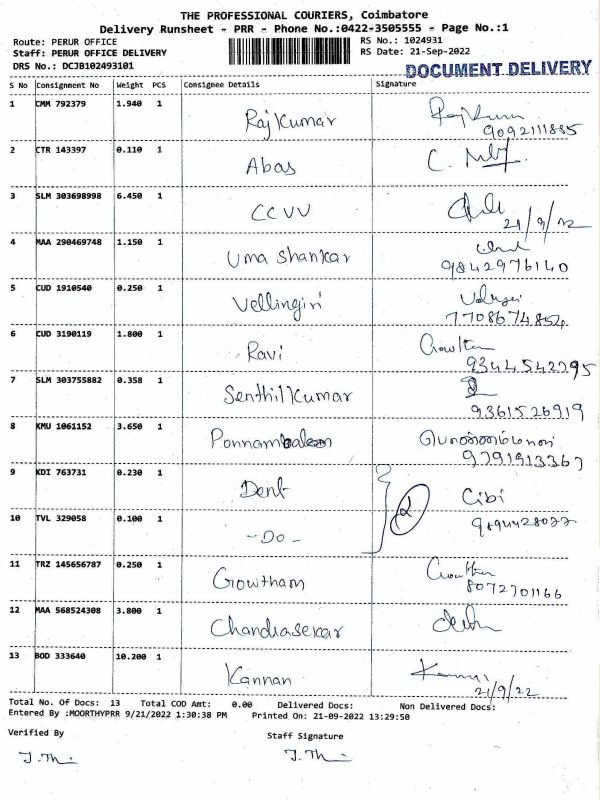 THE PROFESSIONAL COURIERS, Coimbatore
Delivery Runsheet - PRR - Phone No.:0422-3505555 - Page No.:1
Route: PERUR OFFICE RS No.: 1024931
Staff: PERUR OFFICE DELIVERY RS Date: 21-Sep-2022
DRS No.: DCJB102493101 DOCUMENT DELIVERY
S No Consignment No Weight PCS Consignee Details Signature
1 CMM 792379 1.940 1 Rajkumar
9092111885
2 CTR 143397 0.110 1 Abas
3 SLM 303698998 6.450 1 CCVV
21/9/22
4 MAA 290469748 1.150 1 Uma Shankar
9842976140
5 CUD 1910540 0.250 1 Vellingiri
7708674854
6 CUD 3190119 1.800 1 Ravi Gowtham
9344542295
7 SLM 303755882 0.358 1 Senthilkumar
9361526919
8 KMU 1061152 3.650 1 Ponnambalam
9791913367
9 KDI 763731 0.230 1 Dent 2 Cibi
10 TVL 329058 0.100 1 -Do-
11 TRZ 145656787 0.250 1 Gowtham Gowtham
8072701166
12 MAA 568524308 3.800 1 Chandrasekar
13 BOD 333640 10.200 1 Kannan
21/9/22
Total No. Of Docs: 13 Total COD Amt: 0.00 Delivered Docs: Non Delivered Docs:
Entered By :MOORTHYPRR 9/21/2022 1:30:38 PM Printed On: 21-09-2022 13:29:50
Verified By Staff Signature